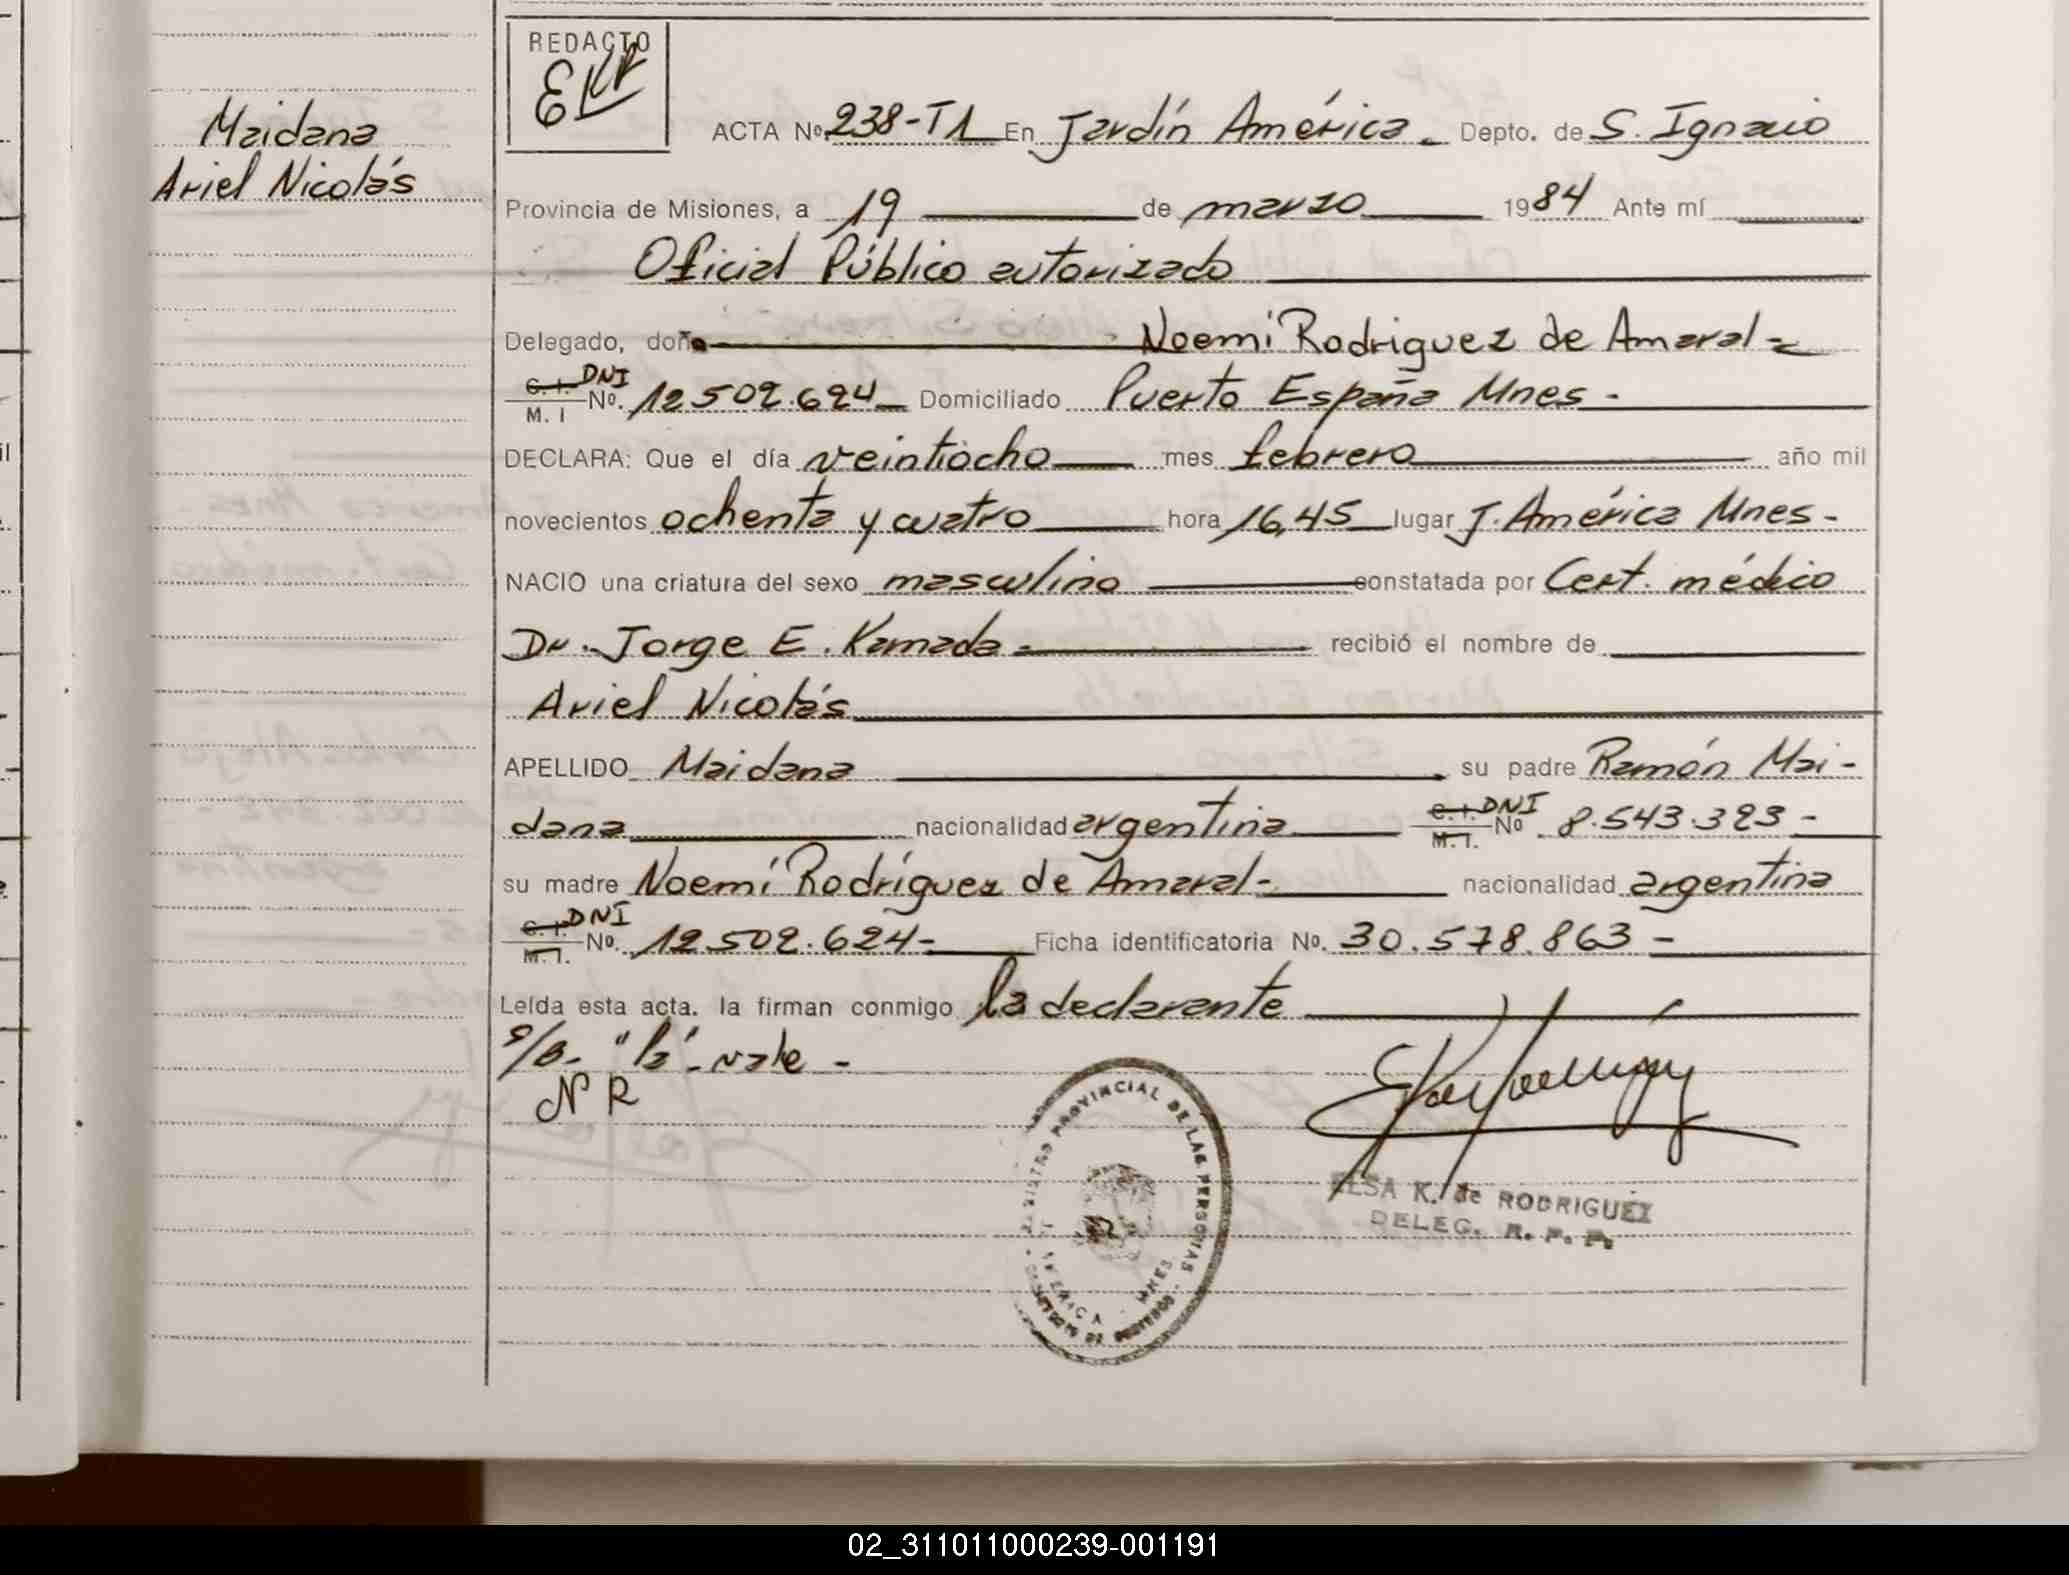 REDACTO
Maidana
Ariel Nicolás
ACTA Nº 238-T1 En Jardín América. Depto. de S. Ignacio
Provincia de Misiones, a 19 de marzo 1984 Ante mí
Oficial Público autorizado
Delegado, doña Noemí Rodriguez de Amaral-
C.I. DNI
M. I Nº. 12.502.624 Domiciliado Puerto España Mnes-
DECLARA: Que el día veintiocho mes febrero año mil
novecientos ochenta y cuatro hora 16,45 lugar J. América Mnes-
NACIO una criatura del sexo masculino constatada por Cert. médico
Dr. Jorge E. Kamada- recibió el nombre de
Ariel Nicolás
APELLIDO Maidana su padre Ramón Mai-
dana nacionalidad argentina C.I. DNI M.I. Nº 8.543.323-
su madre Noemí Rodríguez de Amaral- nacionalidad argentina
C.I. DNI
M.I. Nº. 12.502.624- Ficha identificatoria Nº. 30.578.863-
Leída esta acta. la firman conmigo la declarante
S/B- "la"-vale-
N R
REGISTRO PROVINCIAL DE LAS PERSONAS
AMERICA - MNES
ELSA K. de RODRIGUEZ
DELEG. R. P. P.
02_311011000239-001191